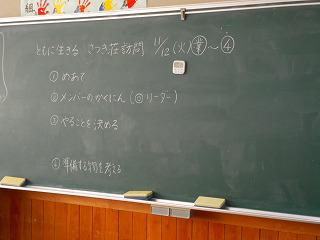 ともに生きる さつき荘訪問 11/12(火)業〜④
①めあて
②メンバーのかくにん(◎リーダー)
③やることを決める
④準備する物を考える